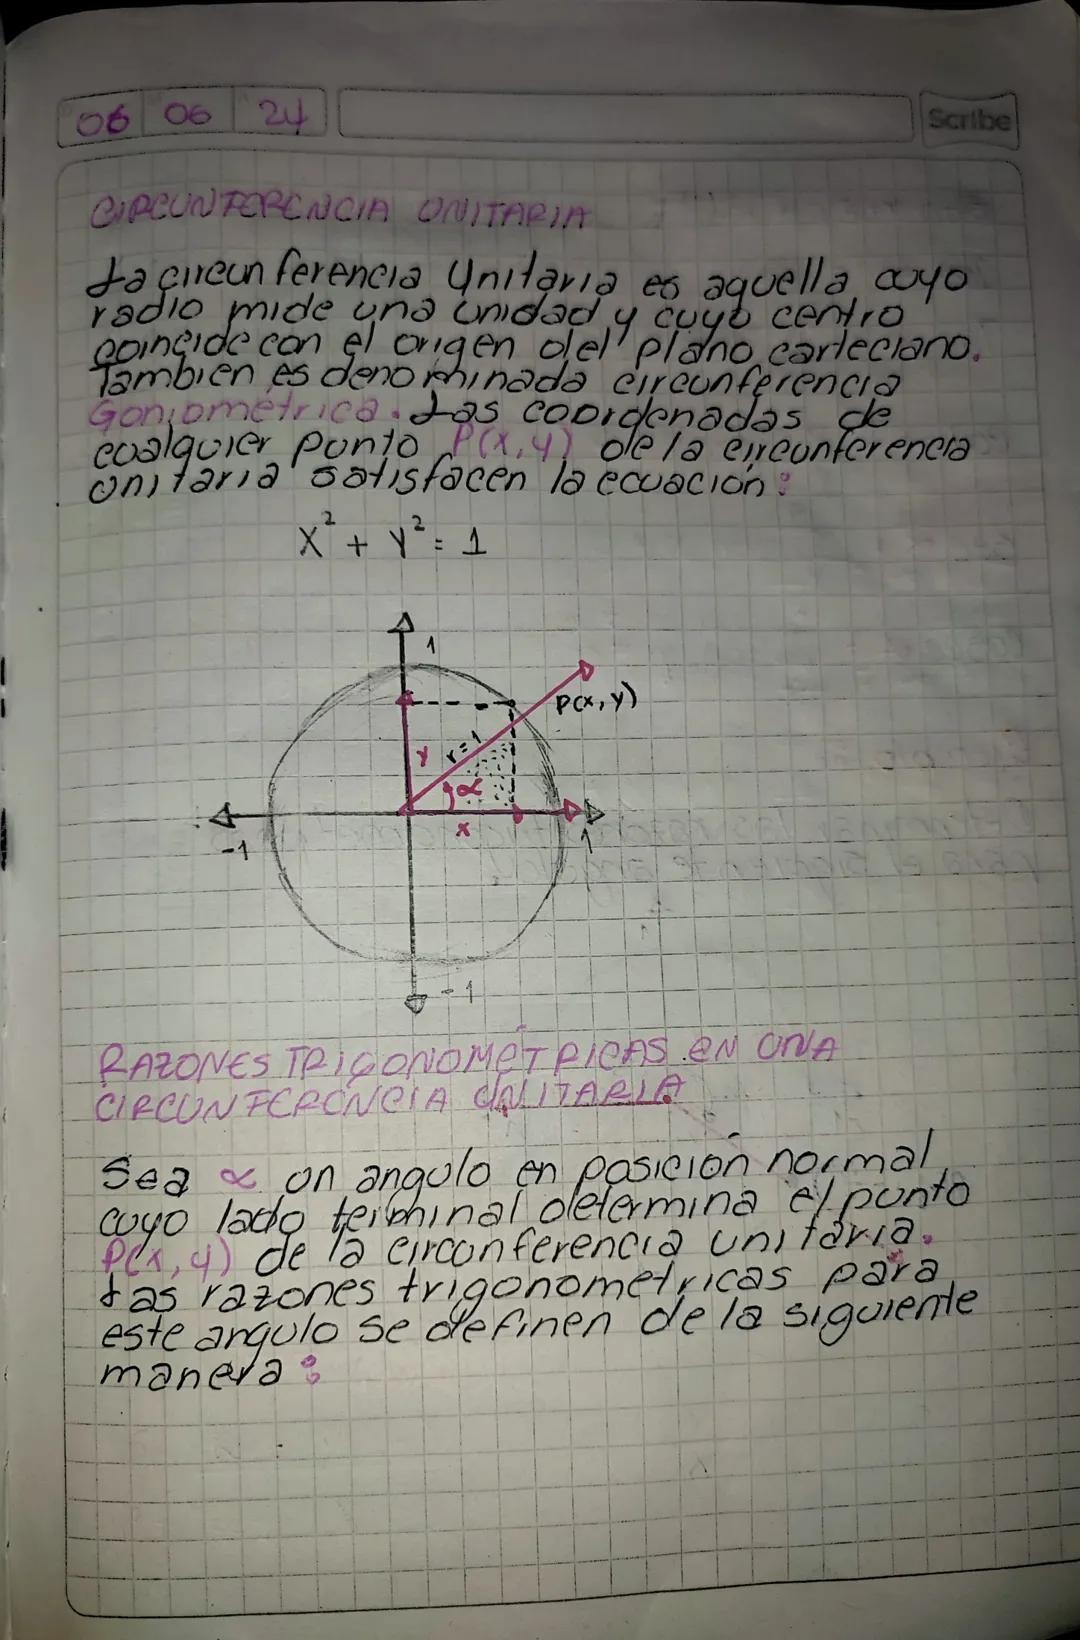 06 06 24
Scribe
CIRCUNFERENCIA UNITARIA
La circunferencia Unitaria es aquella cuyo
radio mide una unidad y cuyo centro
coincide con el origen del plano carteciano.
Tambien es denominada circunferencia
Goniométrica. Las coordenadas de
cualquier punto P(x,y) de la circunferencia
unitaria satisfacen la ecuación:
x² + y² = 1
1
P(x, y)
r=1
y
α
x
-1
1
-1
RAZONES TRIGONOMETRICAS EN UNA
CIRCUNFERENCIA UNITARIA
Sea α un angulo en posición normal
cuyo lado terminal determina el punto
P(x,y) de la circunferencia unitaria.
Las razones trigonometricas para
este angulo se definen de la siguiente
manera: